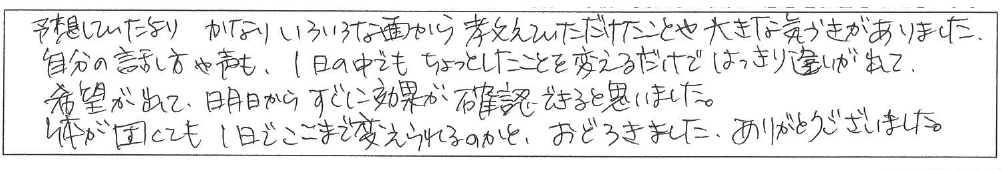 予想していたより かなりいろいろな面から教えていただけたことや大きな気づきがありました.
自分の話し方や声も、1日の中でもちょっとしたことを変えるだけではっきり違いが出て、
希望が出て、明日からすぐに効果が確認できると思いました。
体が固くても1日でここまで変えられるのかと、おどろきました、ありがとうございました。